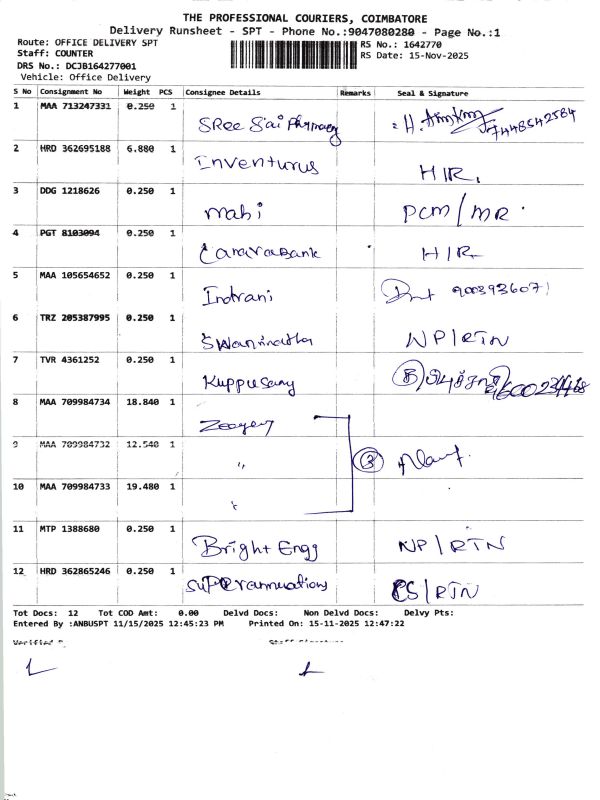 THE PROFESSIONAL COURIERS, COIMBATORE
Delivery Runsheet - SPT - Phone No.:9047080280 - Page No.:1
Route: OFFICE DELIVERY SPT
Staff: COUNTER
RS No.: 1642770
RS Date: 15-Nov-2025
DRS No.: DCJB164277001
Vehicle: Office Delivery
S No Consignment No Weight PCS Consignee Details Remarks Seal & Signature
1 MAA 713247331 0.250 1 SRee Sai Pharmacy 7448542584
2 HRD 362695188 6.880 1 Inventurus HIR.
3 DDG 1218626 0.250 1 mahi PCM/MR
4 PGT 8103094 0.250 1 CanaraBank HIR
5 MAA 105654652 0.250 1 Indrani 9003936071
6 TRZ 205387995 0.250 1 Swaminatha NP/RTN
7 TVR 4361252 0.250 1 Kuppusamy
8 MAA 709984734 18.840 1
9 MAA 709984732 12.540 1 " 3
10 MAA 709984733 19.480 1 "
11 MTP 1388680 0.250 1 Bright Engg NP/RTN
12 HRD 362865246 0.250 1 superannuations CS/RTN
Tot Docs: 12 Tot COD Amt: 0.00 Delvd Docs: Non Delvd Docs: Delvy Pts:
Entered By :ANBUSPT 11/15/2025 12:45:23 PM Printed On: 15-11-2025 12:47:22